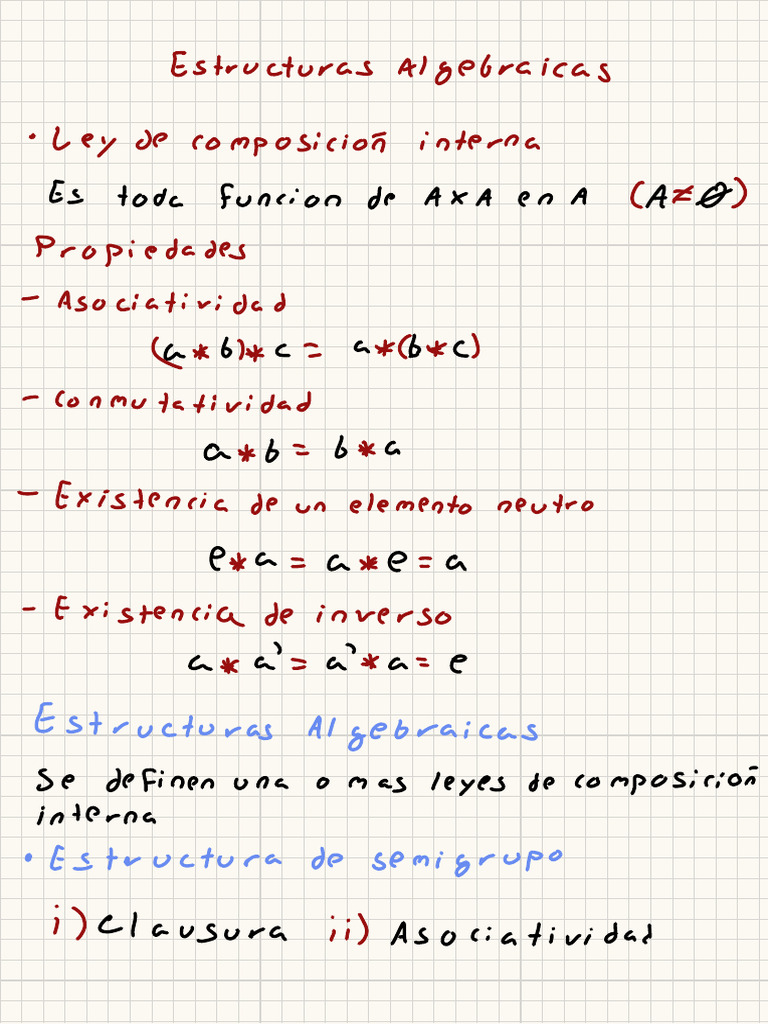 Estructuras Algebraicas
• Ley de composicioñ interna
Es toda funcion de A×A en A (A≠∅)
Propiedades
- Asociatividad
(a * b) * c = a * (b * c)
- Conmutatividad
a * b = b * a
- Existencia de un elemento neutro
e * a = a * e = a
- Existencia de inverso
a * a' = a' * a = e
Estructuras Algebraicas
Se definen una o mas leyes de composicioñ
interna
• Estructura de semigrupo
i) Clausura ii) Asociatividad